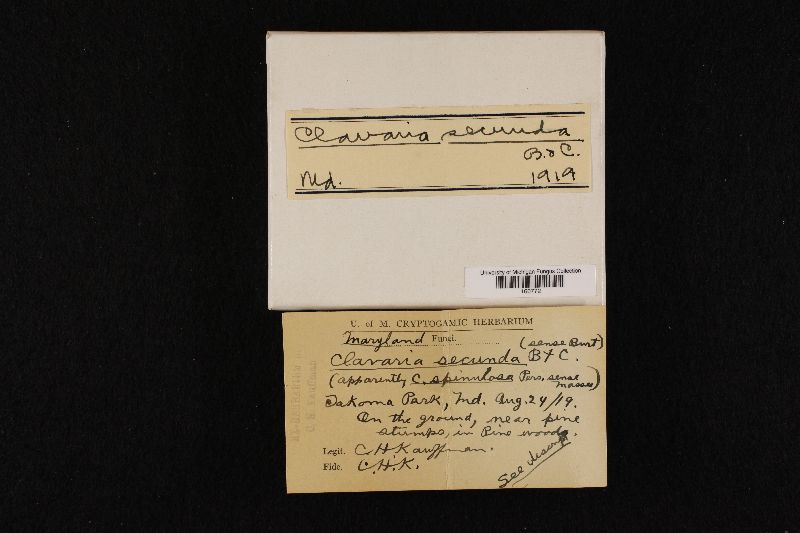 Clavaria secunda
B. & C.
Md. 1919
University of Michigan Fungus Collection
U. of M. CRYPTOGAMIC HERBARIUM
Maryland Fungi. (sense Burt)
Clavaria secunda B & C.
(apparently C. spinulosa Pers. sense Massee)
Takoma Park, Md. Aug. 24/19.
On the ground, near pine
stumps, in Pine woods.
Legit. C. H. Kauffman.
Fide. C. H. K.
See descript